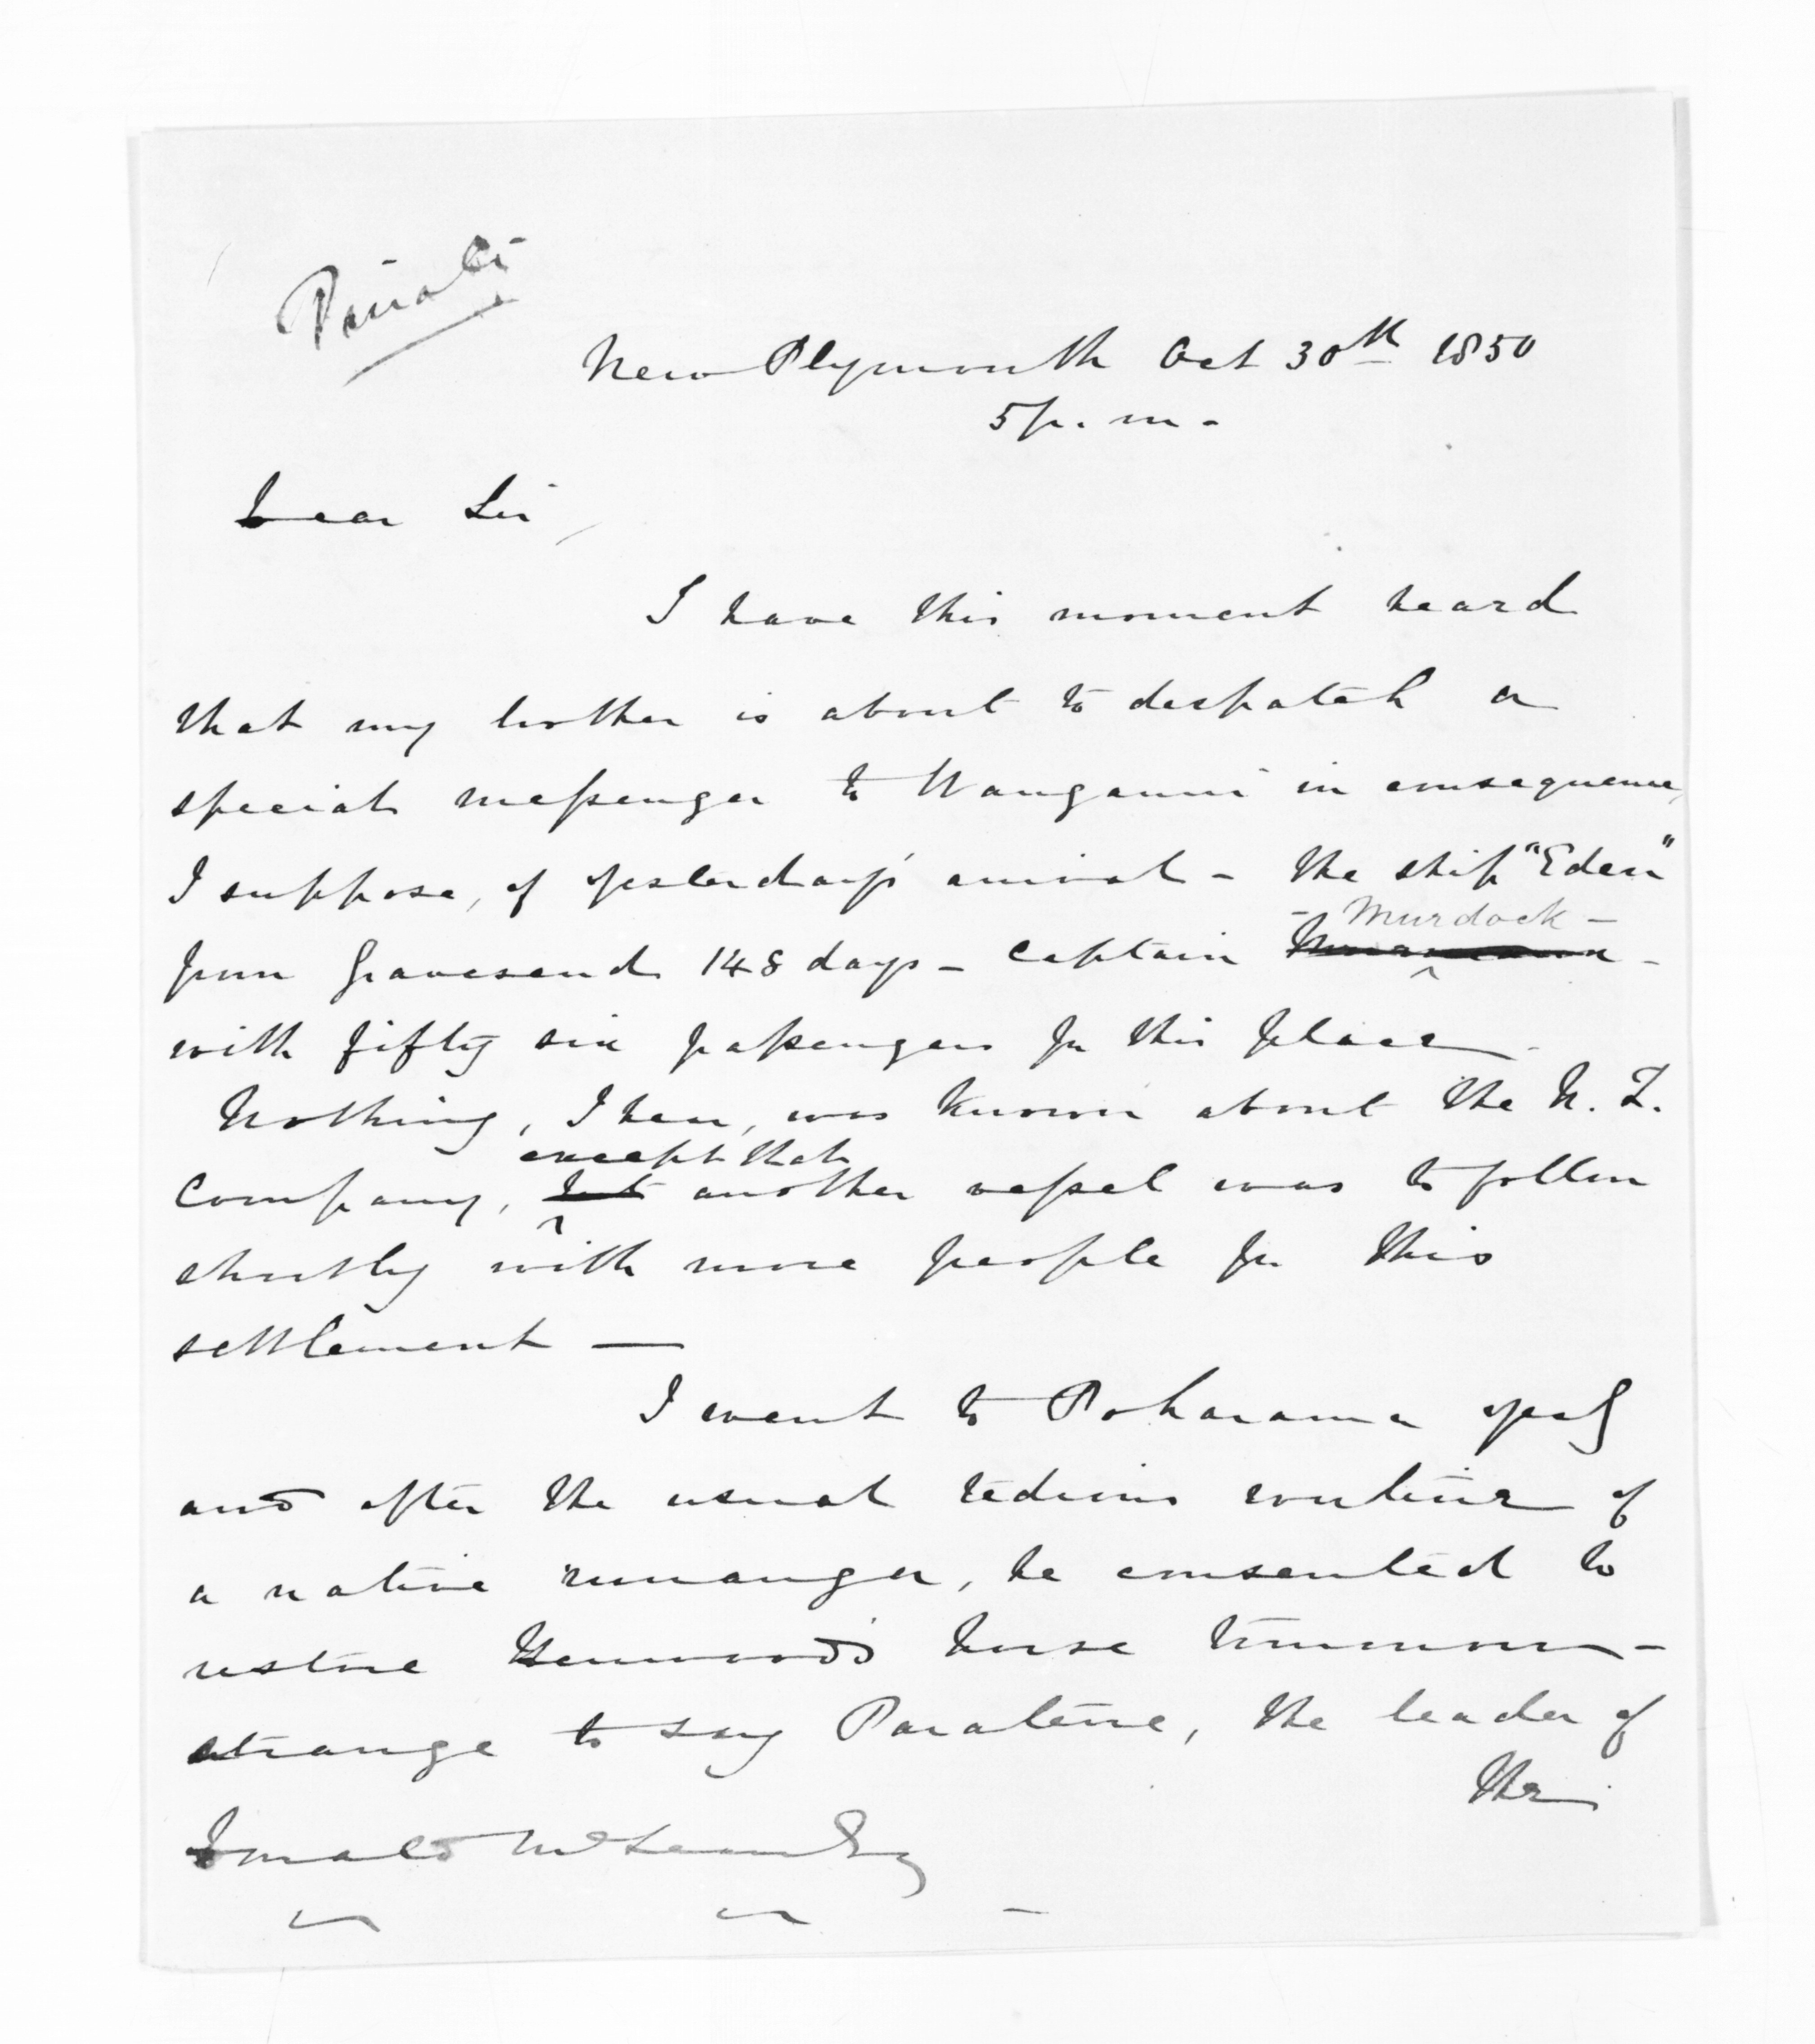 Private
New Plymouth Oct 30th 1850
5 p.m.
Dear Sir,
I have this moment heard
that my brother is about to despatch a
special messenger to Wanganui in consequence,
I suppose, of yesterday's arrival - the ship "Eden"
- Murdock -
from Gravesend 148 days - Captain
with fifty six passengers for this place
Nothing, I hear, was known about the N. Z.
except that
Company, but another vessel was to follow
shortly with more people for this
settlement —
I went to Poharama yesty
and after the usual tedious routine of
a native runanga, he consented to
restore horse tomorrow -
strange to say Paratene, the leader of
the
Donald McLean Esq